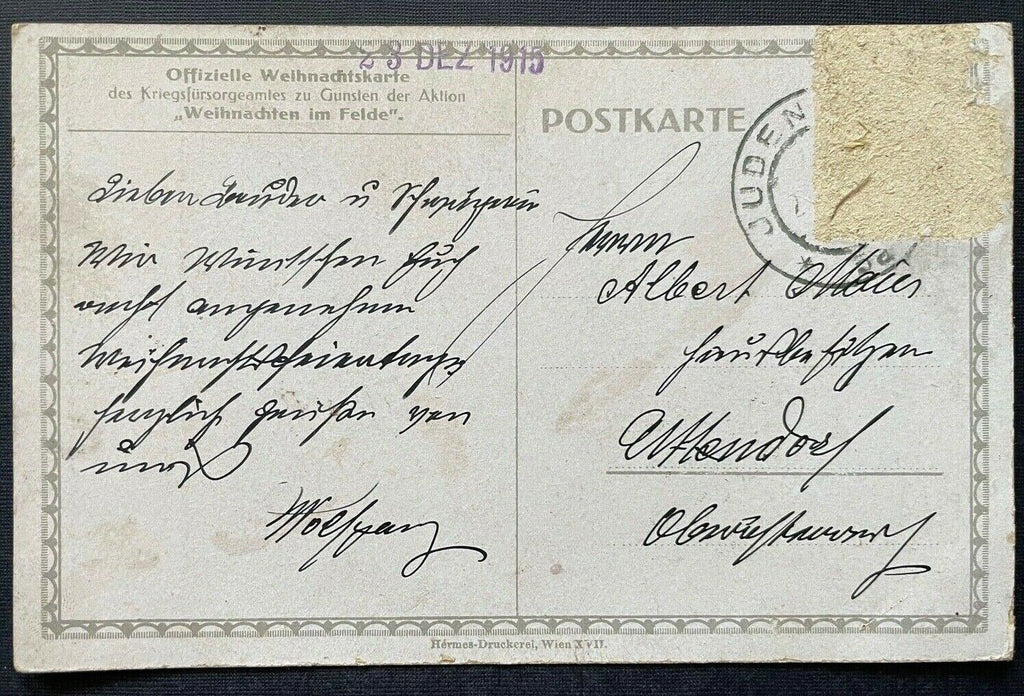 23 DEZ 1915
Offizielle Weihnachtskarte
des Kriegsfürsorgeamtes zu Gunsten der Aktion
„Weihnachten im Felde".
POSTKARTE
JUDEN
Lieben Bruder u Schwägerin
Wir Wünschen Euch
recht angenehme
Weihnachtsfeiertage,
herzlich grüßen von
uns
Wolfgang
Herrn
Albert
Hausbesitzer
Uttendorf
Oberösterreich
Hermes-Druckerei, Wien XVII.